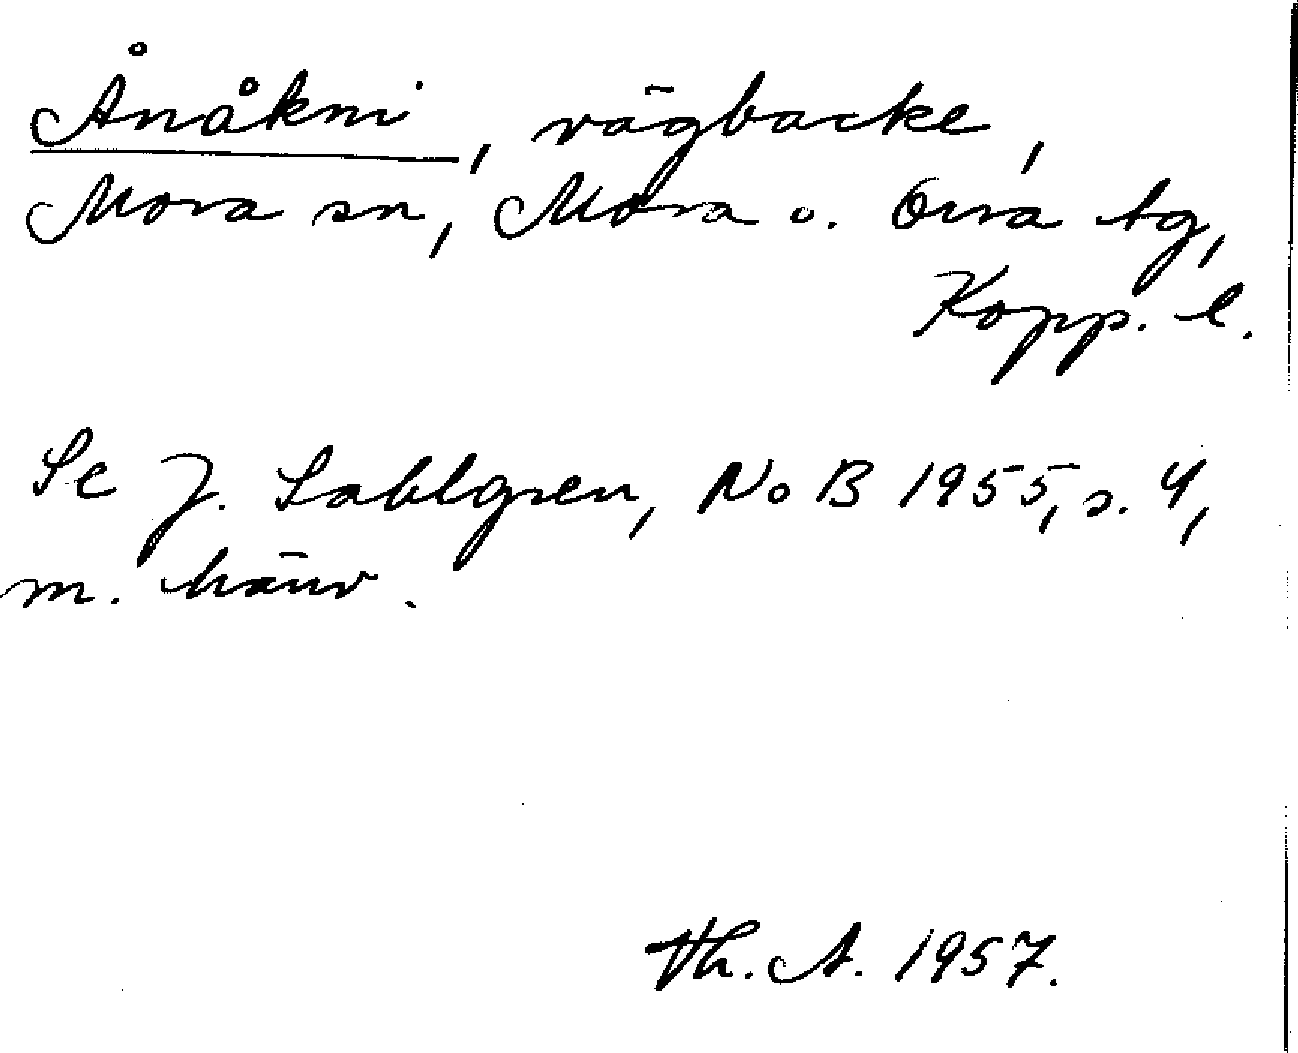 Ånåkni, vägbacke,
Mora sn, Mora o. Orsa tg,
Kopp. l.
Se J. Sahlgren, NoB 1955, s. 4,
m. hänv.
Th. A. 1957.